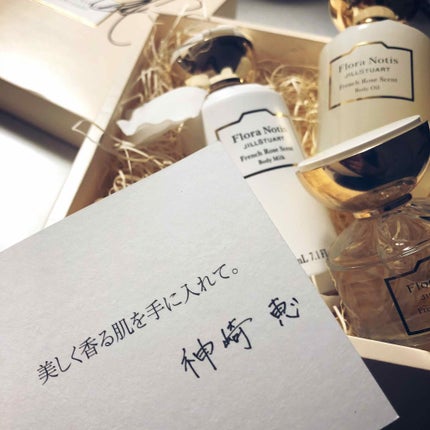 Flora Notis
JILLSTUART
French Rose Scent
Body Oil
Flora Notis
JILLSTUART
French Rose Scent
Body Milk
mL 7.1 fl
Flora No
美しく香る肌を手に入れて。
神崎 恵